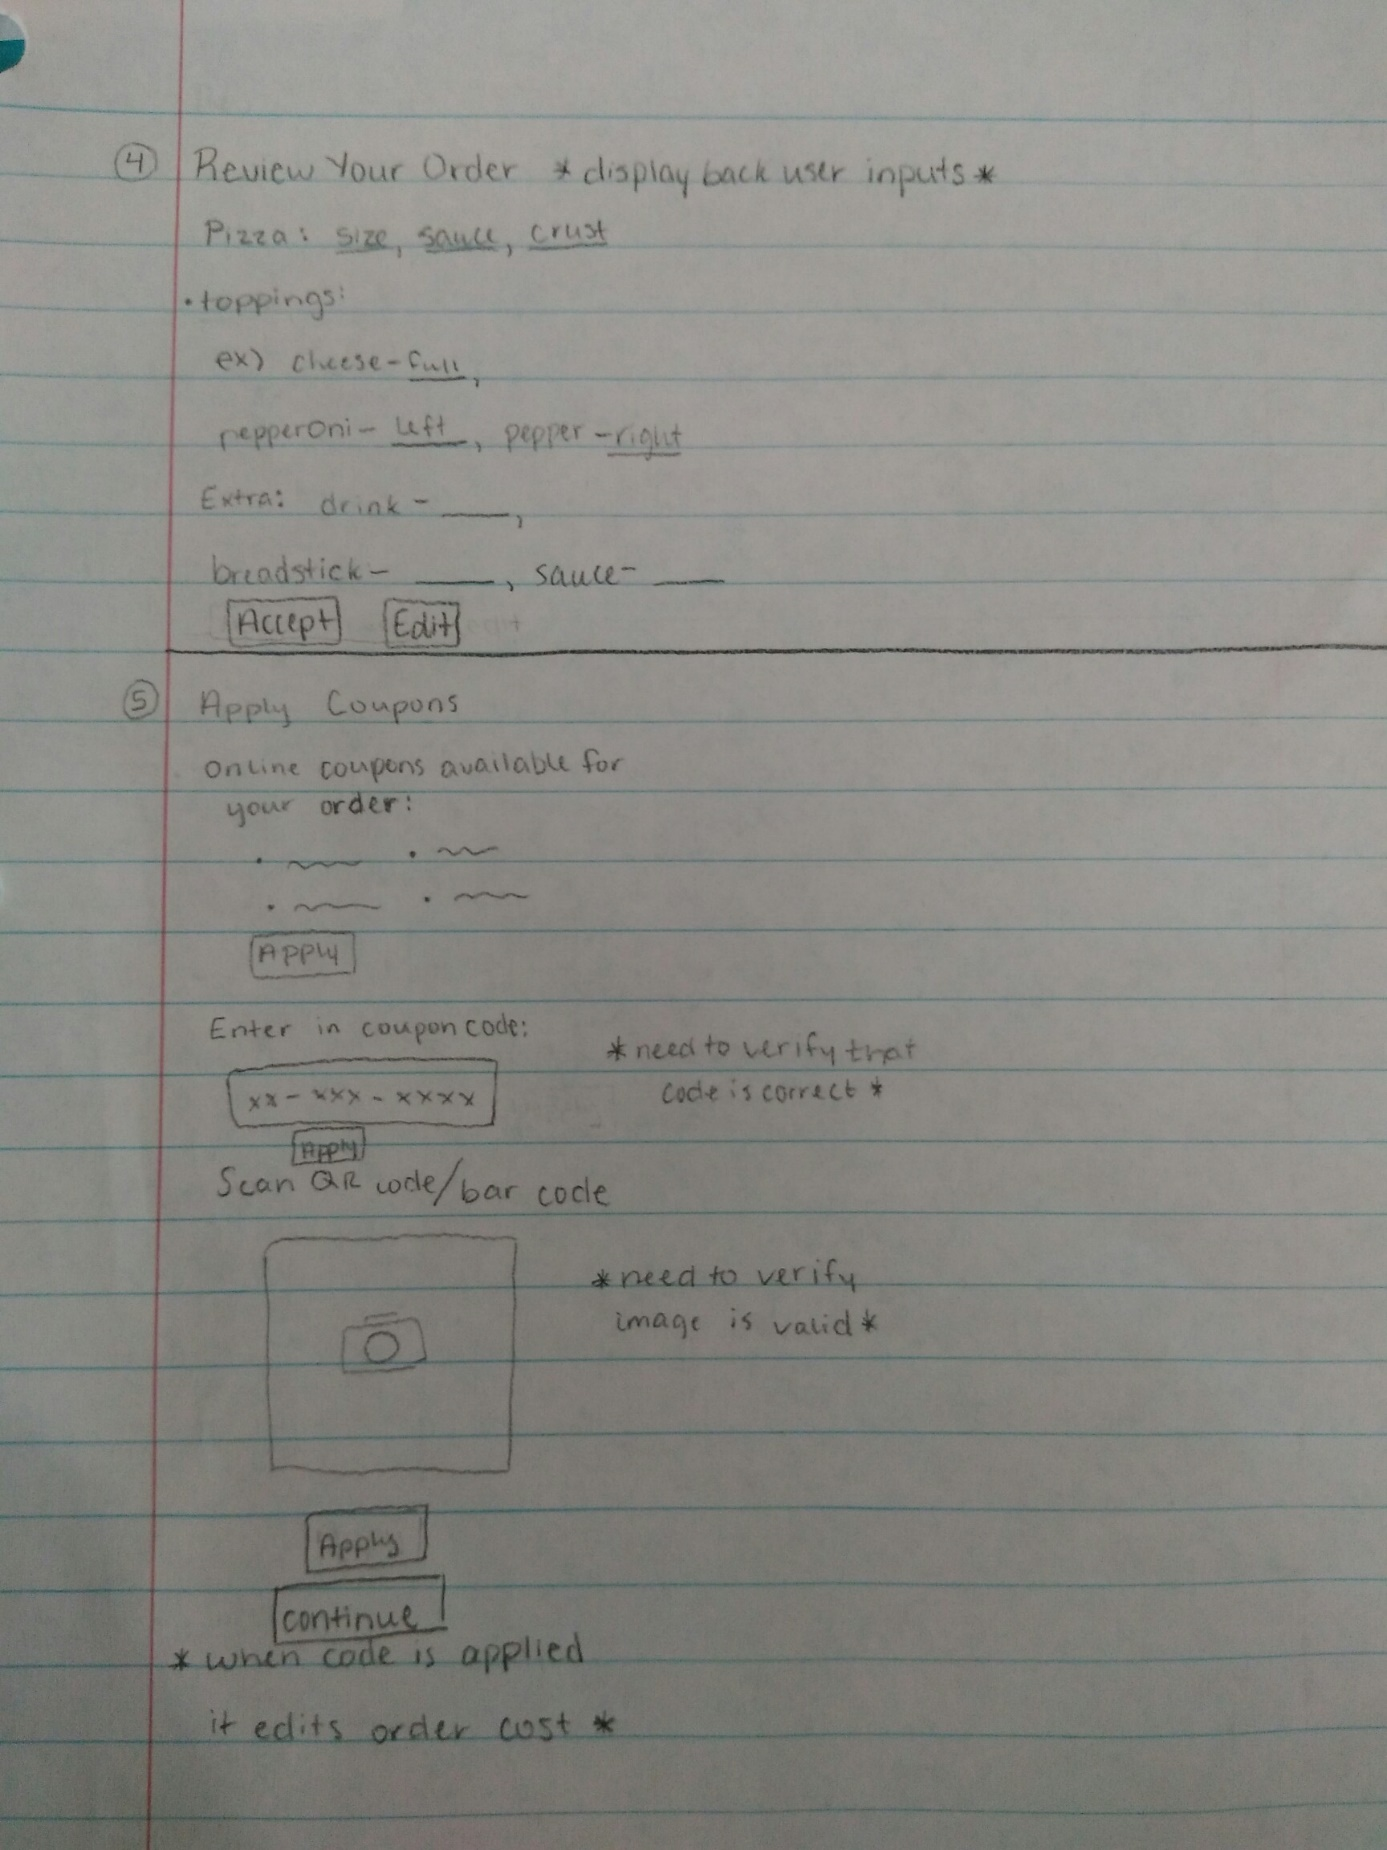 4 Review Your Order * display back user inputs *
Pizza: size, sauce, crust
• toppings:
ex) cheese - full,
pepperoni - left, pepper - right
Extra: drink - ____,
breadstick - ____, sauce - ____
Accept Edit
5 Apply Coupons
Online coupons available for
your order:
Apply
Enter in coupon code:
* need to verify that
code is correct *
xx - xxx - xxxx
Apply
Scan QR code/bar code
* need to verify
image is valid *
Apply
continue
* when code is applied
it edits order cost *